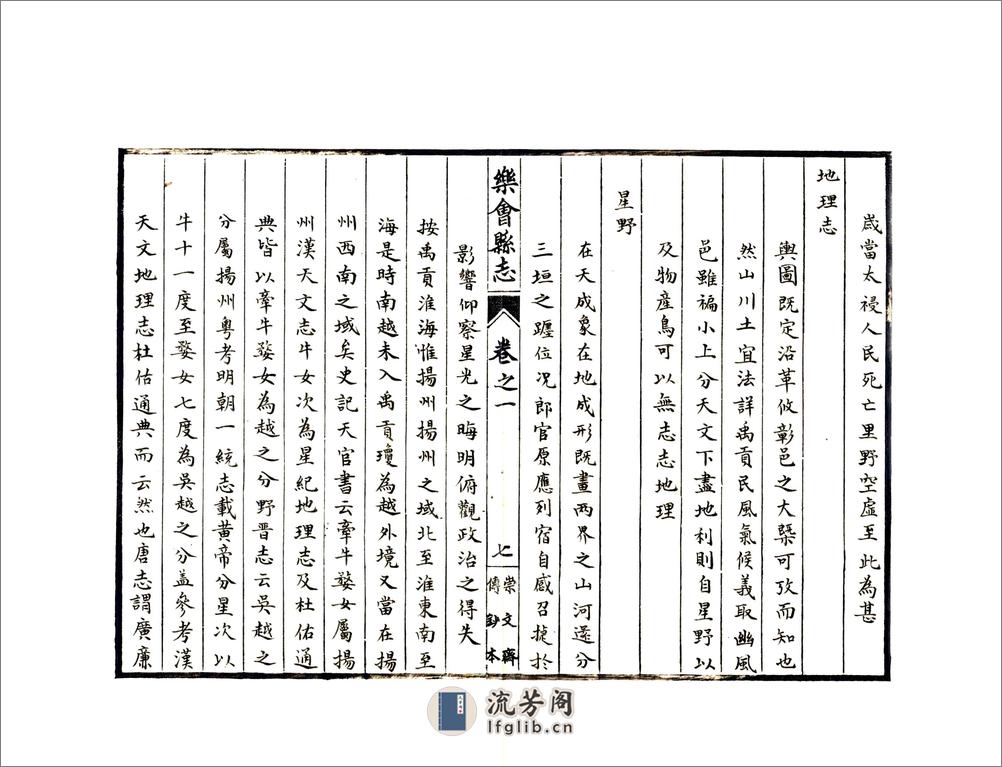 歳當太祲人民死亡里野空虛至此為甚
地理志
輿圖既定沿革攸彰邑之大槩可攷而知也
然山川土宜法詳禹貢民風氣候義取豳風
邑雖褊小上分天文下盡地利則自星野以
及物產烏可以無志志地理
星野
在天成象在地成形既畫兩界之山河還分
三垣之躔位况郎官原應列宿自感召捷於
影響仰察星光之晦明俯觀政治之得失
樂會縣志
卷之一
七
崇文齋
傳鈔本
按禹貢淮海惟揚州揚州之域北至淮東南至
海是時南越未入禹貢瓊為越外境又當在揚
州西南之域矣史記天官書云牽牛婺女屬揚
州漢天文志牛女次為星紀地理志及杜佑通
典皆以牽牛婺女為越之分野晋志云吳越之
分屬揚州粵考明朝一統志載黃帝分星次以
牛十一度至婺女七度為吳越之分盖參考漢
天文地理志杜佑通典而云然也唐志謂廣廉
流芳阁
lfglib.cn